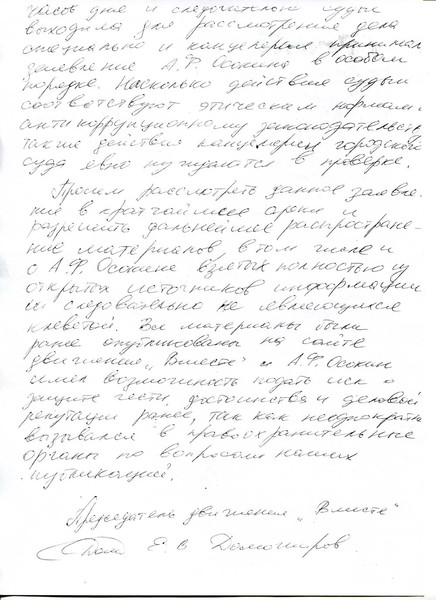 часть дня и следовательно судьи
выходила для рассмотрения дела
специально и канцелярия принимал
заявление А.Ф. Осокина в особом
порядке. Насколько действия судьи
соответствуют этическим нормам и
антикоррупционному законодательству
такие действия канцелярии городского
суда явно нуждаются в проверке.
Просим рассмотреть данное заявле-
ние в кратчайшие сроки и
разрешить дальнейшее распростране-
ние материалов в том числе и
о А.Ф. Осокине взятых полностью из
открытых источников информации
и следовательно не являющихся
клеветой. Все материалы были
ранее опубликованы на сайте
движения „Вместе" и А.Ф. Осокин
имел возможность подать иск о
защите чести, достоинства и деловой
репутации ранее, так как неоднократно
вызывался в правоохранительные
органы по вопросам наших
публикаций.
Председатель движения „Вместе"
Е. В Доможиров